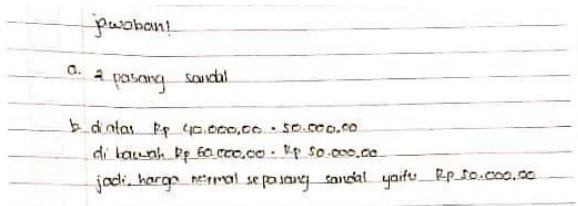 jawaban!
a. 2 pasang sandal
b. diatas Rp 40.000,00 • 50.000,00
di bawah Rp 60.000,00 • Rp 50.000,00
jadi, harga normal sepasang sandal yaitu Rp 50.000,00